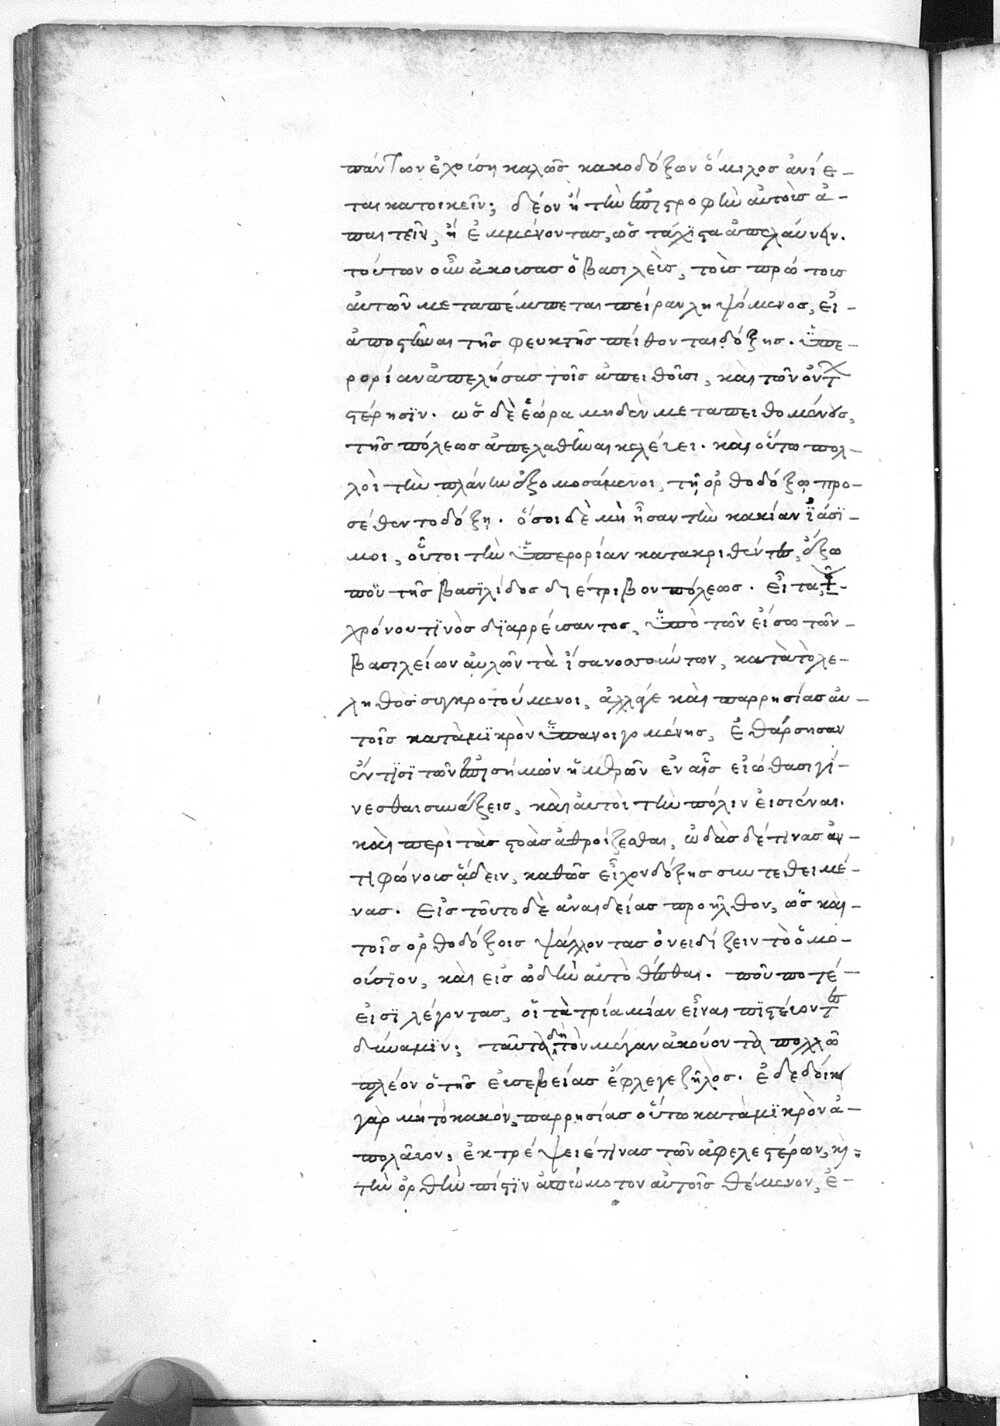 πάντων ἐχούσῃ καλῶς κακοδόξων ὅμιλος ἀνίε-
ται κατοικεῖν; δέον ἢ τὴν ἐπιστροφὴν αὐτοὺς ἀ-
παιτεῖν, ἢ ἐμμένοντας, ὡς τάχιστα ἀπελαύνειν.
τούτων οὖν ἀκούσας ὁ βασιλεὺς, τοὺς πρώτους
αὐτῶν μεταπέμπεται πεῖραν ληψόμενος, εἰ
ἀποστῆναι τῆς φευκτῆς πείθονται δόξης. ὑπε-
ρορίαν ἀπειλήσας τοῖς ἀπειθοῦσι, καὶ τῶν ὄντων
στέρησιν. ὡς δὲ ἑώρα μηδὲν μεταπειθομένους,
τῆς πόλεως ἀπελαθῆναι κελεύει. καὶ οὕτω πολ-
λοὶ τὴν πλάνην ἐξομοσάμενοι, τῇ ὀρθοδόξῳ προ-
σέθεντο δόξῃ. ὅσοι δὲ μὴ ἦσαν τὴν κακίαν ἰάσι-
μοι, οὗτοι τὴν ὑπερορίαν κατακριθέντες, ἔξω
που τῆς βασιλίδος διέτριβον πόλεως. εἶτα
χρόνου τινὸς διαρρεύσαντος, ὑπὸ τῶν εἴσω τῶν
βασιλείων αὐλῶν τὰ ἴσα νοσούντων, κατὰ τὸ λε-
ληθὸς συγκροτούμενοι, ἀλλά γε καὶ παρρησίας αὐ-
τοῖς κατὰ μικρὸν ὑπανοιγομένης, ἐθάρσησαν
ἔν τισι τῶν ἐπισήμων ἡμερῶν ἐν αἷς εἰώθασι γί-
νεσθαι συνάξεις, καὶ αὐτοὶ τὴν πόλιν εἰσιέναι.
καὶ περὶ τὰς στοὰς ἀθροίζεσθαι, ὠδάς δέ τινας ἀν-
τιφώνους ᾄδειν, καθὼς εἶχον δόξης συντεθειμέ-
νας. εἰς τοῦτο δὲ ἀναιδείας προῆλθον, ὡς καὶ
τοῖς ὀρθοδόξοις ψάλλοντας ὀνειδίζειν τὸ ὁμο-
ούσιον, καὶ εἰς ὠδὴν αὐτὸ θέσθαι. ποῦ ποτέ
εἰσι λέγοντας, οἱ τὰ τρία μίαν εἶναι πιστεύοντες
δύναμιν; ταῦτα δὴ τὸν μέγαν ἀκούοντα πολλῷ
πλέον ὁ τῆς εὐσεβείας ἔφλεγε ζῆλος. ἐδεδοίκει
γὰρ μὴ τὸ κακὸν, παρρησίας οὕτω κατὰ μικρὸν ἀ-
πολαῦον, ἐκτρέψειέ τινας τῶν ἀφελεστέρων, καὶ
τὴν ὀρθὴν πίστιν ἀπώμοτον αὐτοῖς θέμενον, ἐ-